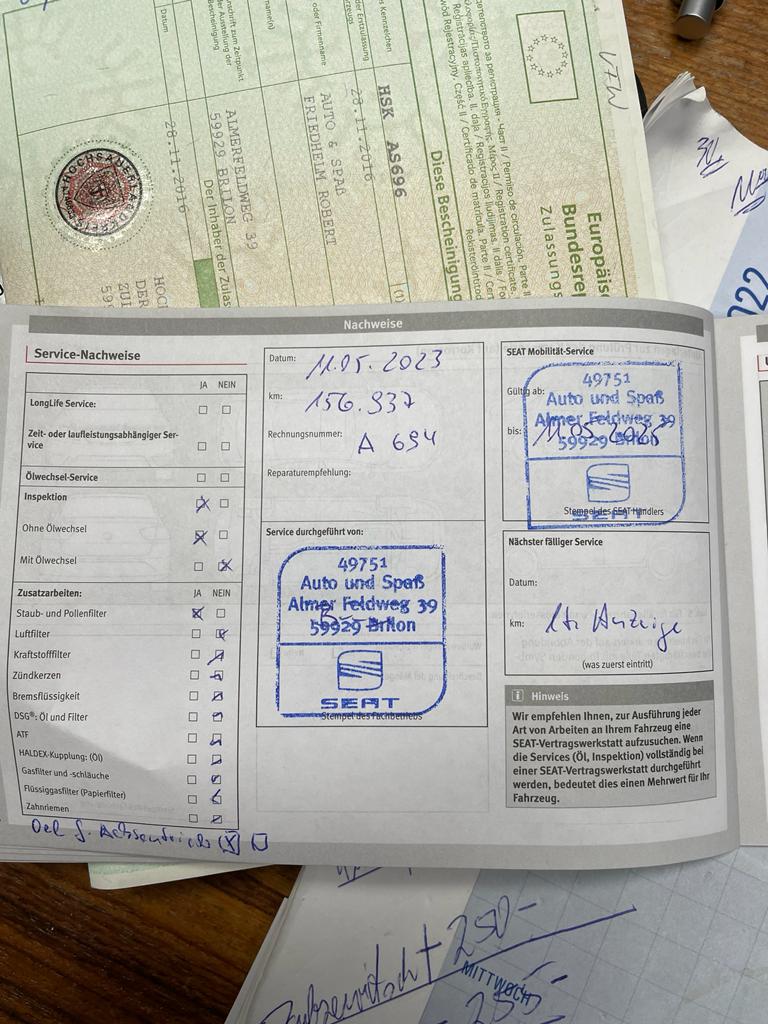 VFW
Europäis
Bundesre
Zulassung
Diese Bescheinigung
HSK AS696
28.11.2016
AUTO & SPAß
FRIEDHELM ROBERT
ALMERFELDWEG 39
59929 BRILON
Der Inhaber der Zulas
28.11.2016
Datum
oder Firmenname
Nachweise
Service-Nachweise
JA NEIN
LongLife Service:
Zeit- oder laufleistungsabhängiger Ser-
vice
Ölwechsel-Service
Inspektion
Ohne Ölwechsel
Mit Ölwechsel
Zusatzarbeiten: JA NEIN
Staub- und Pollenfilter
Luftfilter
Kraftstofffilter
Zündkerzen
Bremsflüssigkeit
DSG®: Öl und Filter
ATF
HALDEX-Kupplung: (Öl)
Gasfilter und -schläuche
Flüssiggasfilter (Papierfilter)
Zahnriemen
Datum: 11.05.2023
km: 156.937
Rechnungsnummer: A 694
Reparaturempfehlung:
Service durchgeführt von:
49751
Auto und Spaß
Almer Feldweg 39
59929 Brilon
SEAT
Stempel des Fachbetriebs
SEAT Mobilität-Service
Gültig ab:
bis:
49751
Auto und Spaß
Almer Feldweg 39
59929 Brilon
SEAT
Stempel des SEAT-Händlers
Nächster fälliger Service
Datum:
km: lt. Anzeige
(was zuerst eintritt)
Hinweis
Wir empfehlen Ihnen, zur Ausführung jeder
Art von Arbeiten an Ihrem Fahrzeug eine
SEAT-Vertragswerkstatt aufzusuchen. Wenn
die Services (Öl, Inspektion) vollständig bei
einer SEAT-Vertragswerkstatt durchgeführt
werden, bedeutet dies einen Mehrwert für Ihr
Fahrzeug.
250-
MITTWOCH